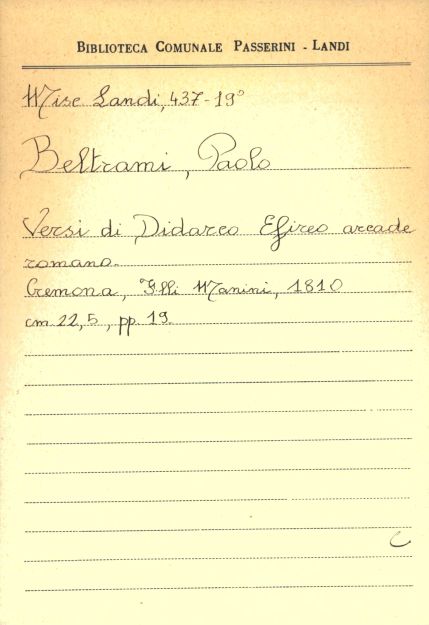 BIBLIOTECA COMUNALE PASSERINI - LANDI
Misc Landi, 437-19°
Beltrami, Paolo
Versi di Didarco Efireo arcade
romano.
Cremona, F.lli Manini, 1810
cm 22,5, pp. 19.
C